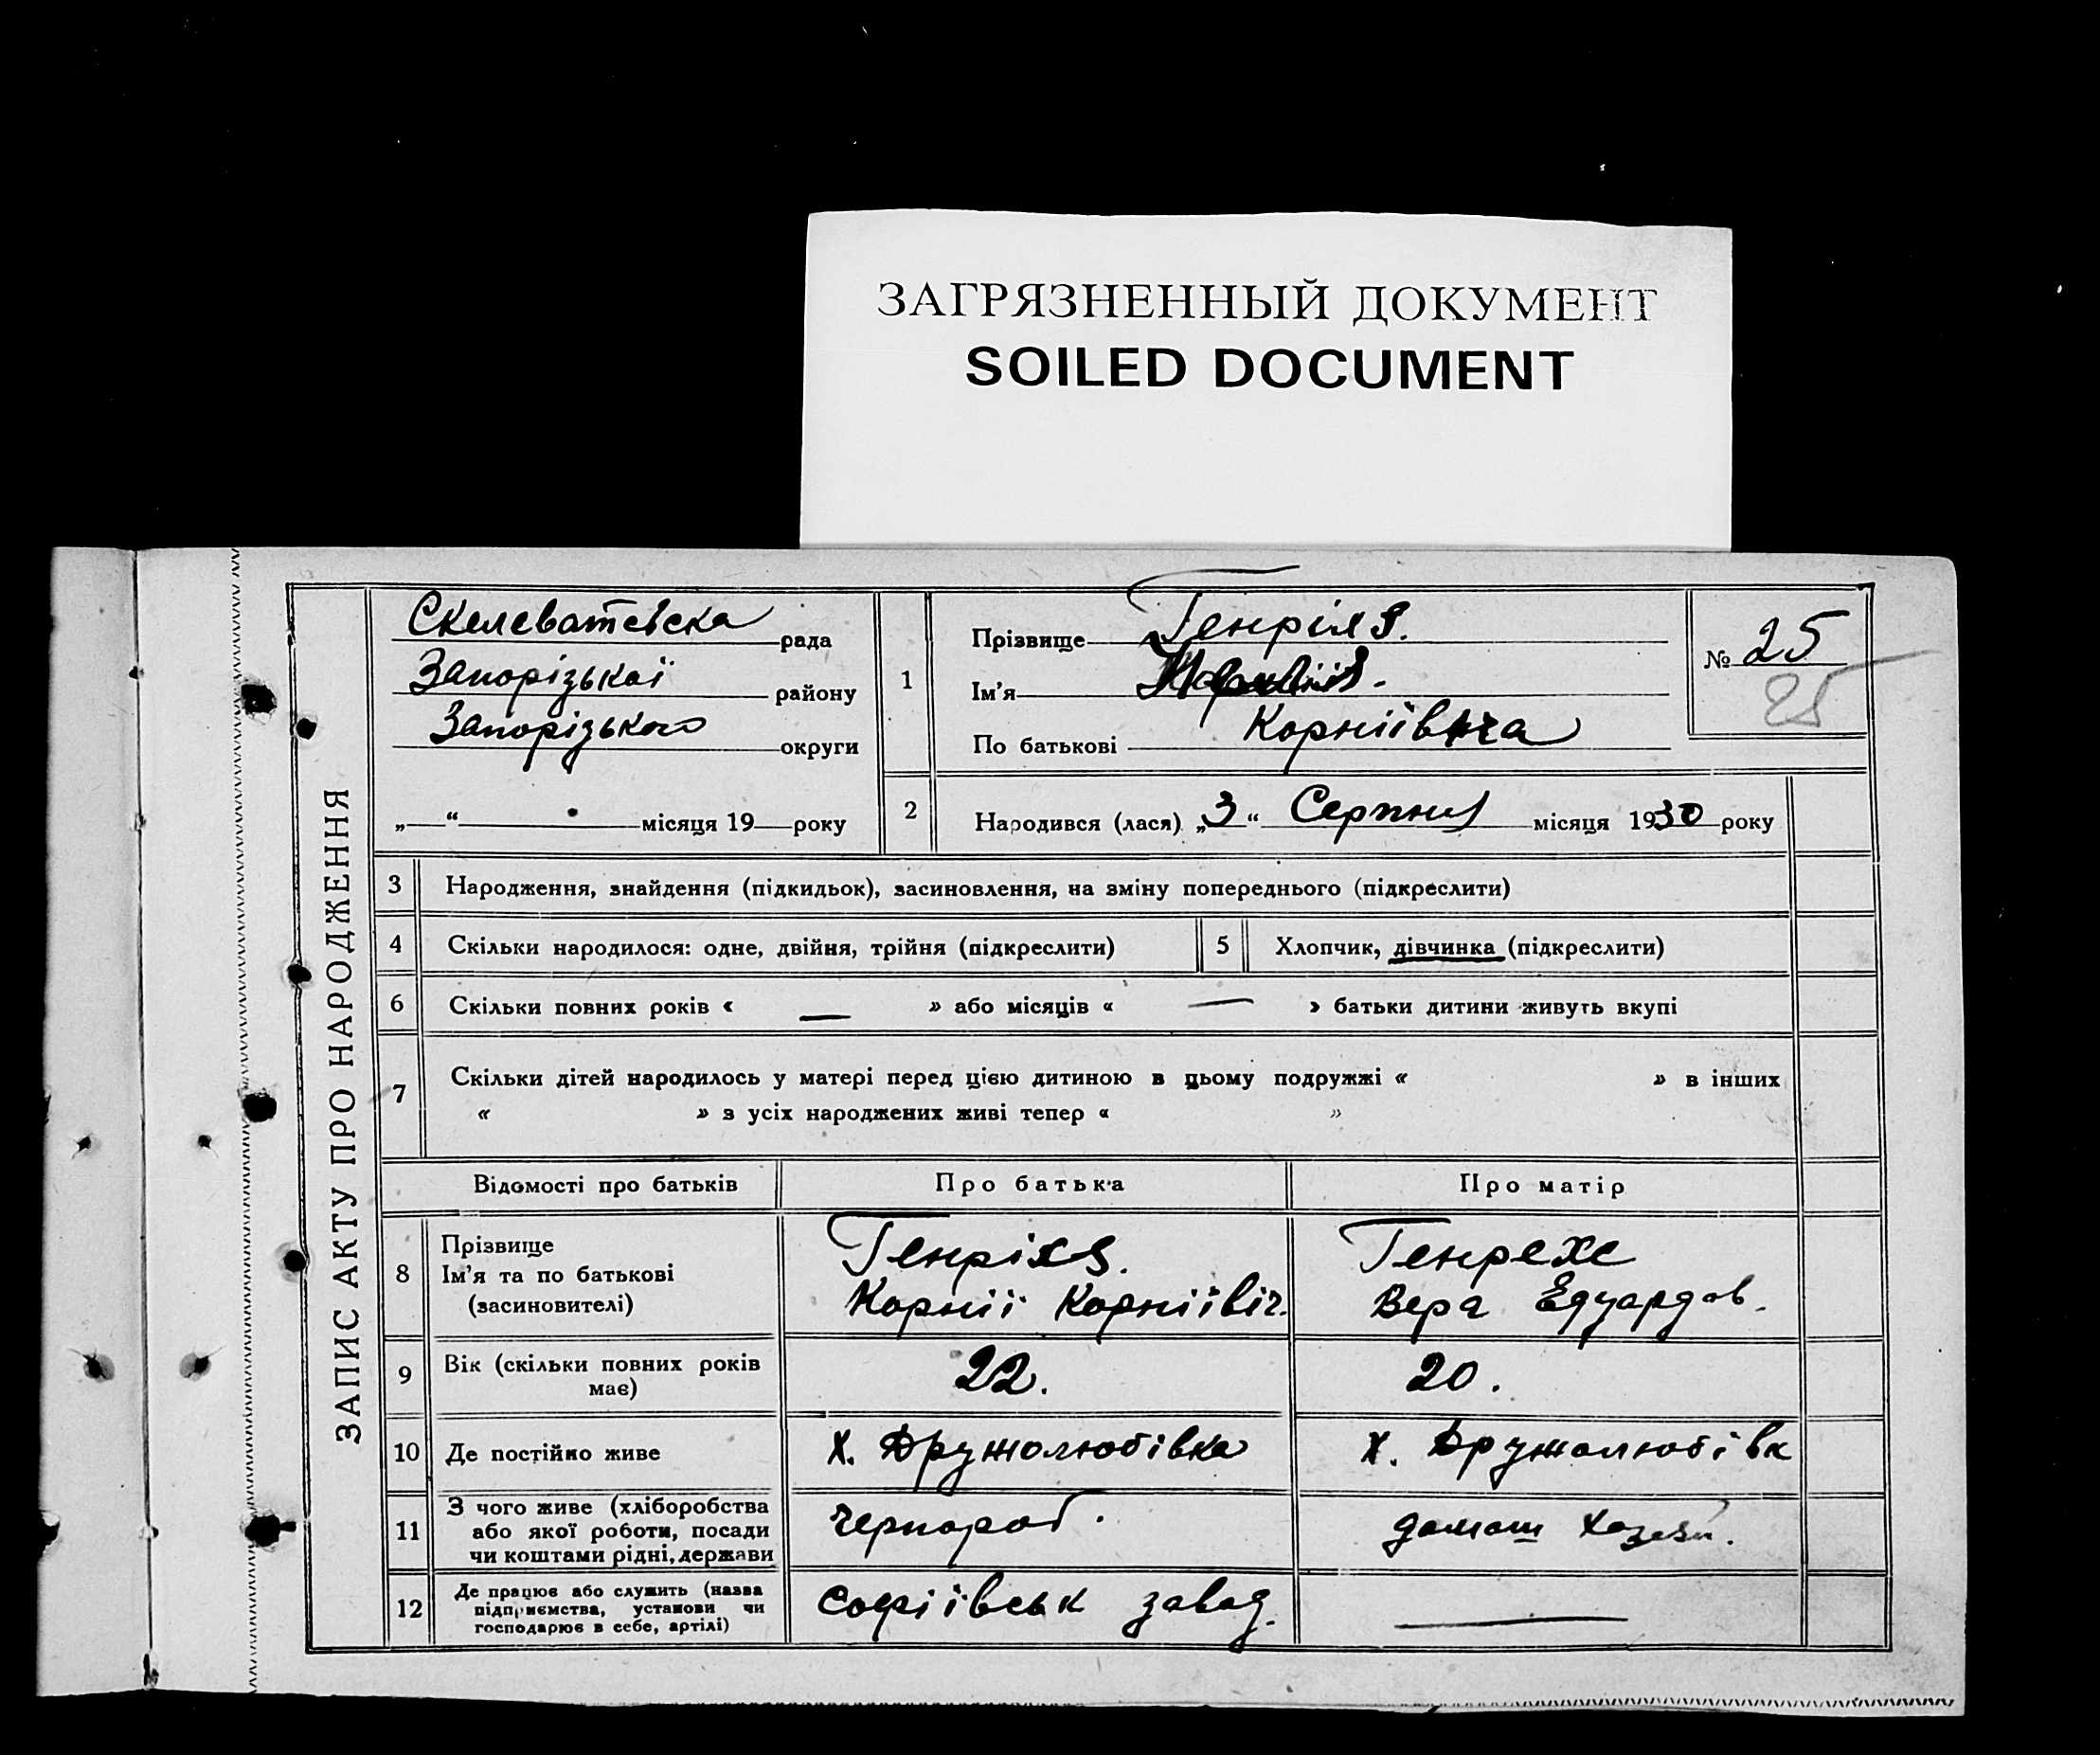 ЗАГРЯЗНЕННЫЙ ДОКУМЕНТ
SOILED DOCUMENT
ЗАПИС АКТУ ПРО НАРОДЖЕННЯ
Скелеватевска рада
Запорізької району
Запорізького округи
„ “ місяця 19 року
1
Прізвище
Ім'я
По батькові
№ 25
25
2
Народився (лася) „3“ Серпня місяця 1930 року
3 Народження, знайдення (підкидьок), засиновлення, на зміну попереднього (підкреслити)
4 Скільки народилося: одне, двійня, трійня (підкреслити)
5 Хлопчик, дівчинка (підкреслити)
6 Скільки повних років « — » або місяців « — » батьки дитини живуть вкупі
7 Скільки дітей народилось у матері перед цією дитиною в цьому подружжі « » в інших
« » з усіх народжених живі тепер « »
Відомості про батьків
Про батька
Про матір
8
Прізвище
Ім'я та по батькові
(засиновителі)
Генріхs.
Корнії Корніївіч.
Генрехс
Вера Едуардов.
9
Вік (скільки повних років
має)
22.
20.
10 Де постійно живе
х. Дружолюбівка
х. Дружолюбівк
11
З чого живе (хліборобства
або якої роботи, посади
чи коштами рідні, держави
чернороб.
домаш хазяй.
12
Де працює або служить (назва
підприємства, установи чи
господарює в себе, артілі)
Софіївськ завод.